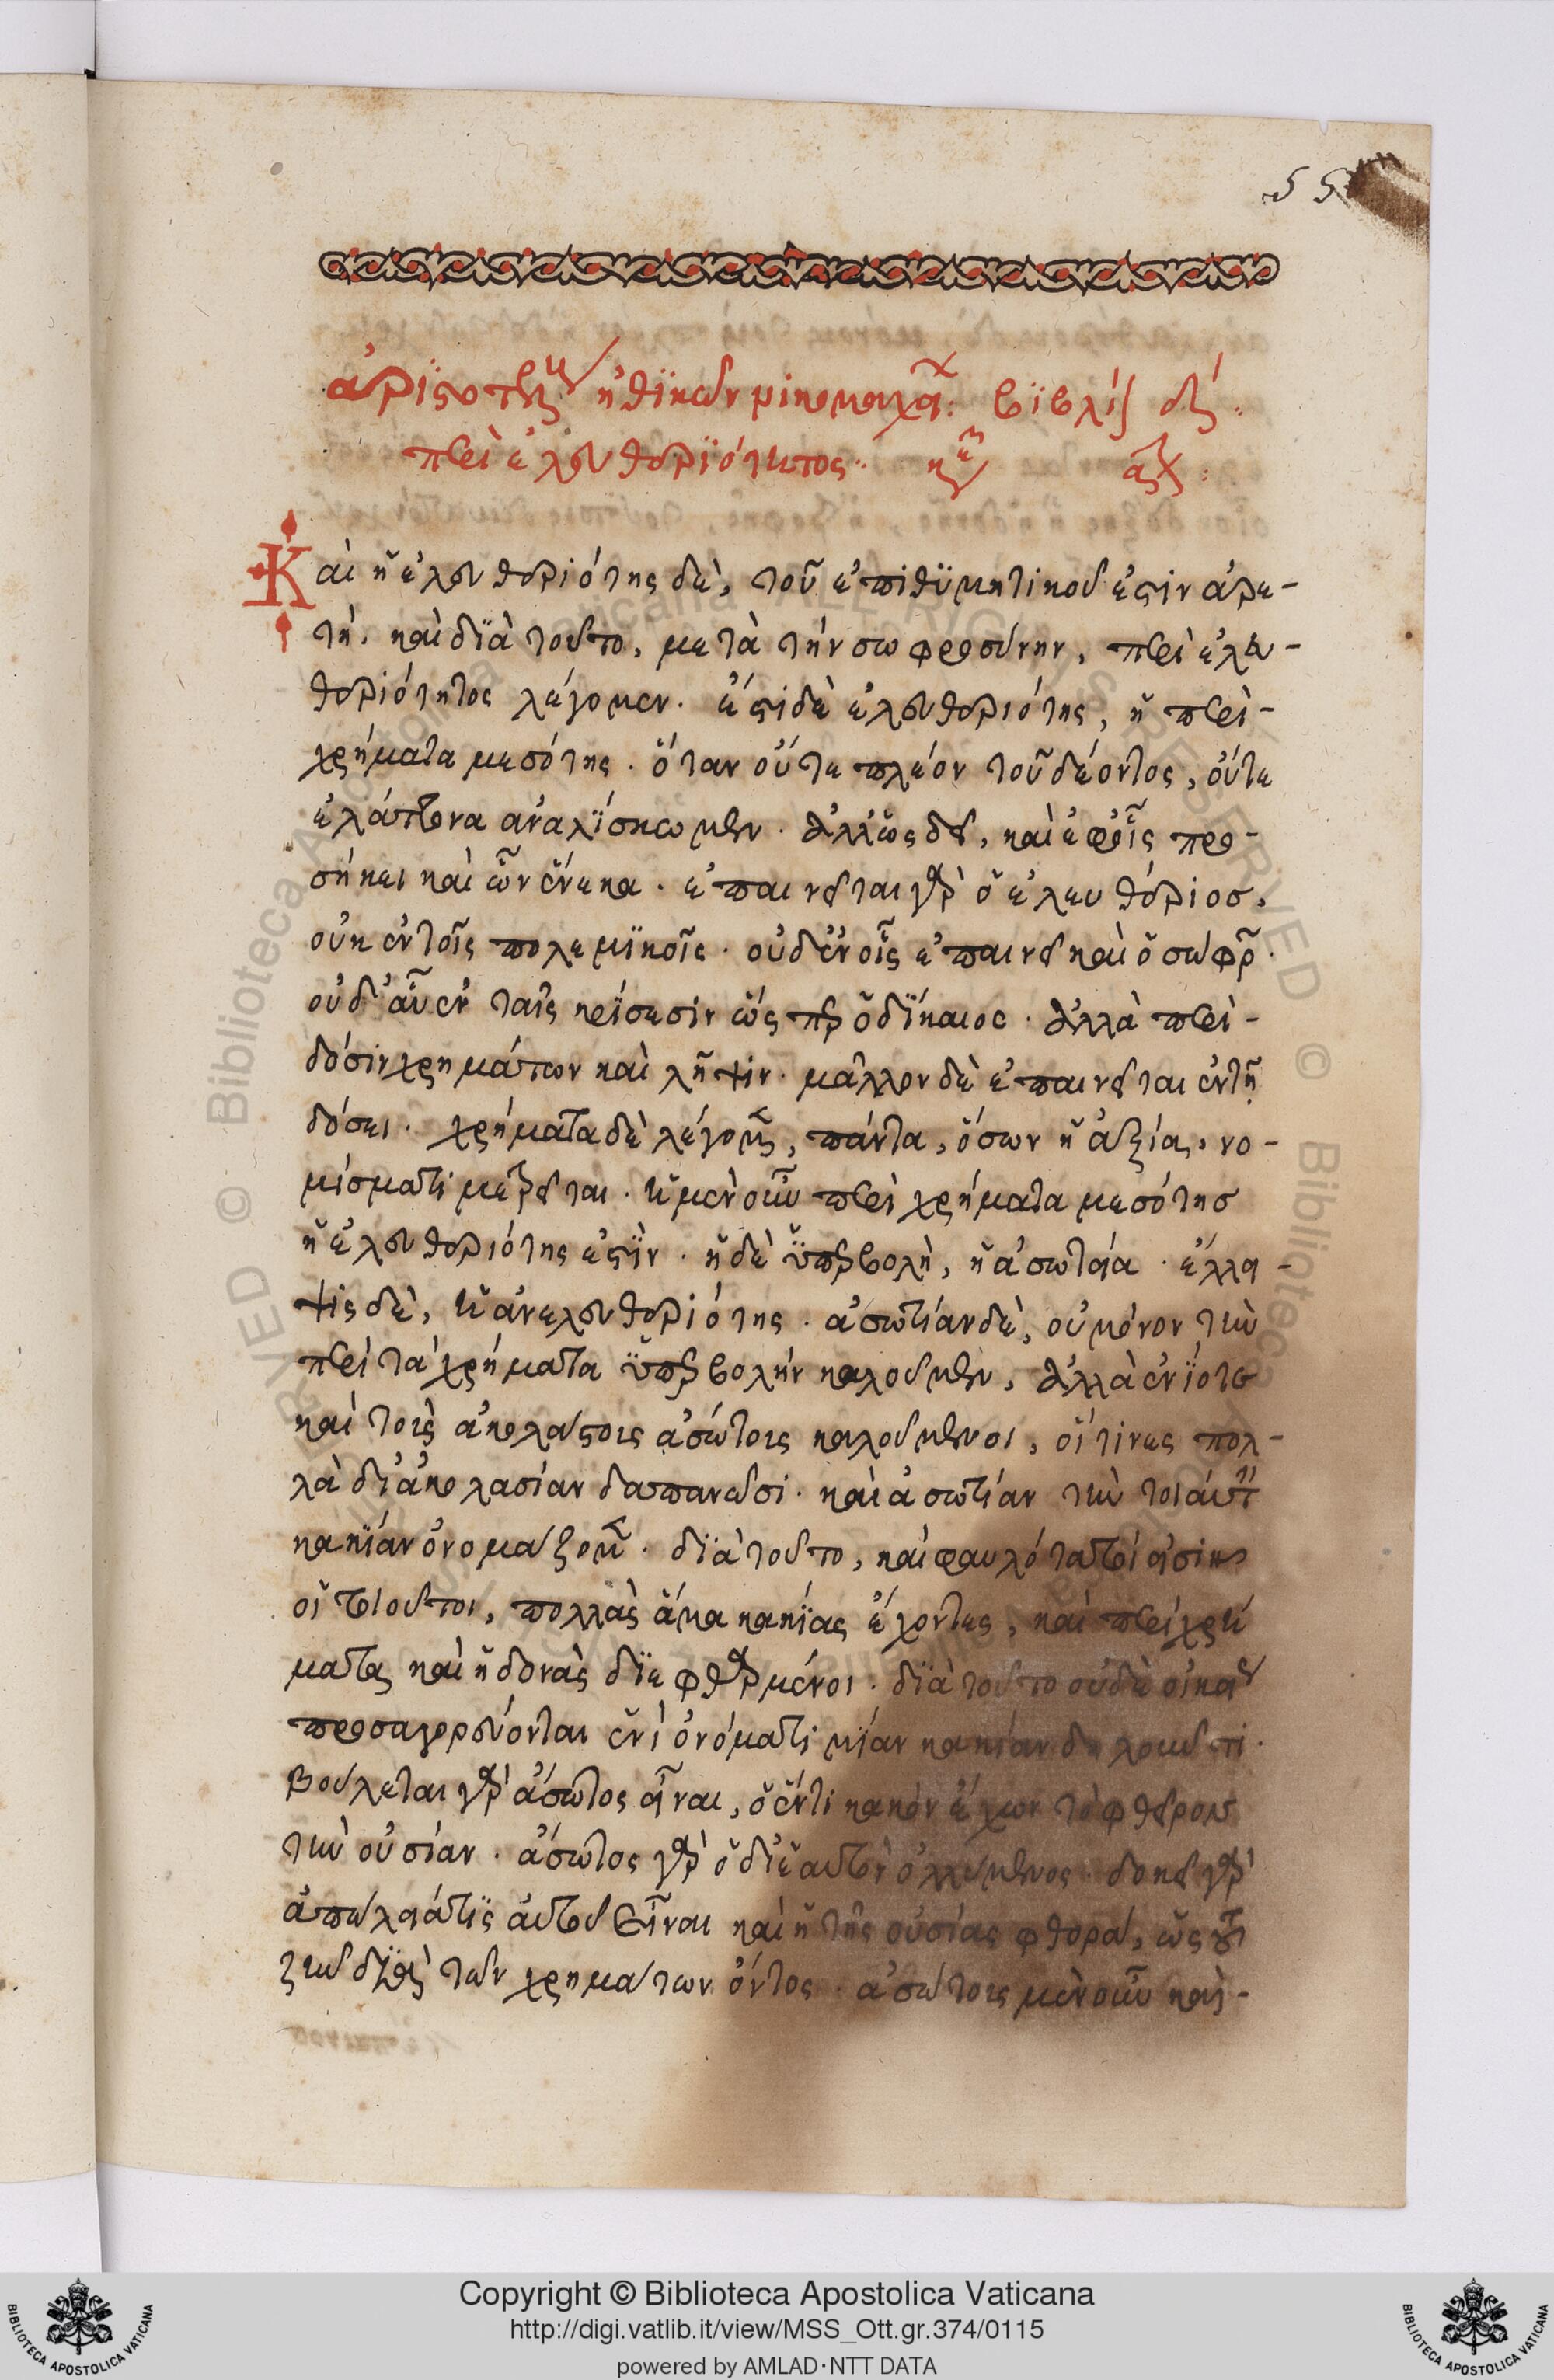 55
ἀριστοτέλους ἠθικῶν νικομαχείων βιβλίον δον
περὶ ἐλευθεριότητος κεφ αον
Καὶ ἡ ἐλευθεριότης δὲ, τοῦ ἐπιθυμητικοῦ ἐστιν ἀρε-
τή. καὶ διὰ τοῦτο, μετὰ τὴν σωφροσύνην, περὶ ἐλευ-
θεριότητος λέγομεν. ἔστι δὲ ἐλευθεριότης, ἡ περὶ-
χρήματα μεσότης. ὅταν οὔτε πλέον τοῦ δέοντος, οὔτε
ἐλάττονα ἀναλίσκωμεν. ἀλλ' ὡς δεῖ, καὶ ἐφ' οἷς προ-
σήκει καὶ ὧν ἕνεκα. ἐπαινεῖται γὰρ ὁ ἐλευθέριος.
οὐκ ἐν τοῖς πολεμικοῖς. οὐδ' ἐν οἷς ἐπαινεῖται καὶ ὁ σώφρων.
οὐδ' αὖ ἐν ταῖς κρίσεσιν ὥσπερ ὁ δίκαιος. ἀλλὰ περὶ-
δόσιν χρημάτων καὶ λῆψιν. μᾶλλον δὲ ἐπαινεῖται ἐν τῇ
δόσει. χρήματα δὲ λέγομεν, πάντα, ὅσων ἡ ἀξία, νο-
μίσματι μετρεῖται. ἡ μὲν οὖν περὶ χρήματα μεσότης
ἡ ἐλευθεριότης ἐστίν. ἡ δὲ ὑπερβολὴ, ἡ ἀσωτεία. ἔλλει-
ψις δὲ, ἡ ἀνελευθεριότης. ἀσωτίαν δὲ, οὐ μόνον τὴν
περὶ τὰ χρήματα ὑπερβολὴν καλοῦμεν, ἀλλὰ ἐνίοτε
καὶ τοῖς ἀκολάστοις ἀσώτοις καλούμενοι, οἵτινες πολ-
λὰ δι' ἀκολασίαν δαπανῶσι. καὶ ἀσωτίαν τὴν τοιαύτην
κακίαν ὀνομάζομεν. διὰ τοῦτο, καὶ φαυλότατοί εἰσιν
οἱ τοιοῦτοι, πολλὰς ἅμα κακίας ἔχοντες, καὶ περὶ χρή
ματα, καὶ ἡδονὰς διεφθαρμένοι. διὰ τοῦτο οὐδὲ οἰκείως
προσαγορεύονται ἑνὶ ὀνόματι μίαν κακίαν δηλοῦντι.
βούλεται γὰρ ἄσωτος εἶναι, ὁ ἕν τι κακὸν ἔχων τὸ φθείρειν
τὴν οὐσίαν. ἄσωτος γὰρ ὁ δι' ἑαυτὸν ὀλλύμενος. δοκεῖ γὰρ
ἀπώλειά τις αὐτοῦ εἶναι καὶ ἡ τῆς οὐσίας φθορά, ὡς τοῦ
ζῆν διὰ τῶν χρημάτων ὄντος. ἀσώτοις μὲν οὖν καὶ-
Copyright © Biblioteca Apostolica Vaticana
http://digi.vatlib.it/view/MSS_Ott.gr.374/0115
powered by AMLAD·NTT DATA